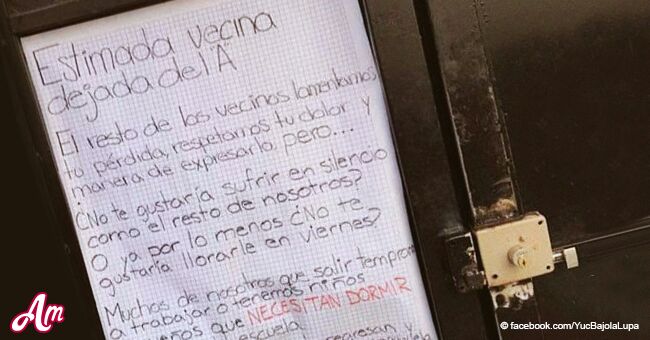 Estimada vecina
dejada del A
El resto de los vecinos lamentamos
tu pérdida, respetamos tu dolor y
manera de expresarlo, pero...
¿No te gustaría sufrir en silencio
como el resto de nosotros?
O ya por lo menos ¿No te
gustaría llorarle en viernes?
Muchos de nosotros que salir tempran
a trabajar o tenemos niños
que NECESITAN DORMIR
escuela
regresan y
Am
© facebook.com/YucBajolaLupa